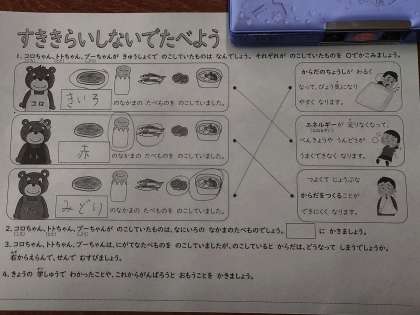 すききらいしないでたべよう
1. コロちゃん、トトちゃん、プーちゃんが きゅうしょくで のこしていたものは なんでしょう。それぞれが のこしていたものを ○でかこみましょう。
コロ
きいろ
のなかまの たべものを のこしていました。
赤
のなかまの たべものを のこしていました。
みどり
のなかまの たべものを のこしていました。
からだのちょうしが わるく
なって、びょう気になり
やすく なります。
エネルギーが 足りなくなって、
べんきょうや うんどうが
うまくできなく なります。
つよくて じょうぶな
からだをつくることが
できにくく なります。
2. コロちゃん、トトちゃん、プーちゃんが のこしていたものは、なにいろの なかまのたべものでしょう。 に かきましょう。
3. コロちゃん、トトちゃん、プーちゃんは、にがてなたべものを のこしていましたが、のこしていると からだは、どうなって しまうでしょうか。
右からえらんで、せんで むすびましょう。
4. きょうの 学しゅうで わかったことや、これからがんばろうと おもうことを かきましょう。